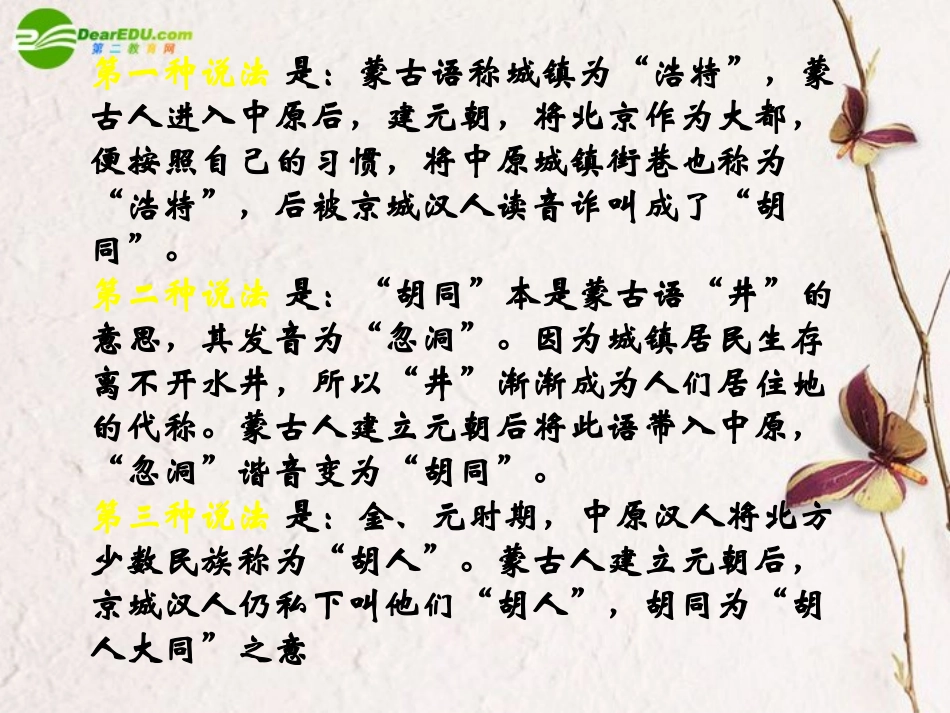 DearEDU.com
第二教育网
第一种说法 是：蒙古语称城镇为“浩特”，蒙
古人进入中原后，建元朝，将北京作为大都，
便按照自己的习惯，将中原城镇街巷也称为
“浩特”，后被京城汉人读音诈叫成了“胡
同”。
第二种说法 是：“胡同”本是蒙古语“井”的
意思，其发音为“忽洞”。因为城镇居民生存
离不开水井，所以“井”渐渐成为人们居住地
的代称。蒙古人建立元朝后将此语带入中原，
“忽洞”谐音变为“胡同”。
第三种说法 是：金、元时期，中原汉人将北方
少数民族称为“胡人”。蒙古人建立元朝后，
京城汉人仍私下叫他们“胡人”，胡同为“胡
人大同”之意